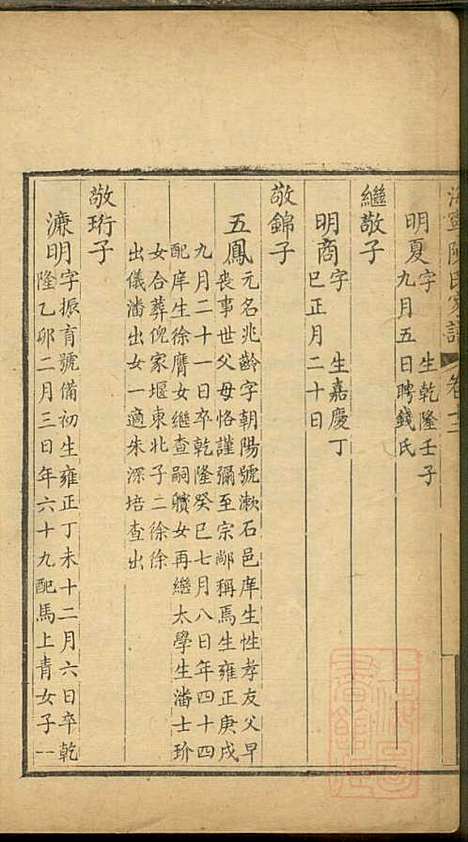 海寧陳氏家譜 卷
明夏字　生乾隆壬子
九月五日聘錢氏
繼敬子
明商字　生嘉慶丁
巳正月二十日
敬錦子
五鳳元名兆齡字朝陽號漱石邑庠生性孝友父早
喪事世父母恪謹彌至宗稱焉生雍正庚戌
九月二十一日卒乾隆癸巳七月八日年四十四
配庠生徐膺女繼查嗣女再繼太學生潘士玠
女合葬倪家堰東北子二徐徐
出儀潘出女一適朱深培查出
敬珩子
濂明字振育號備初生雍正丁未十二月六日卒乾
隆乙卯二月三日年六十九配馬上青女子一